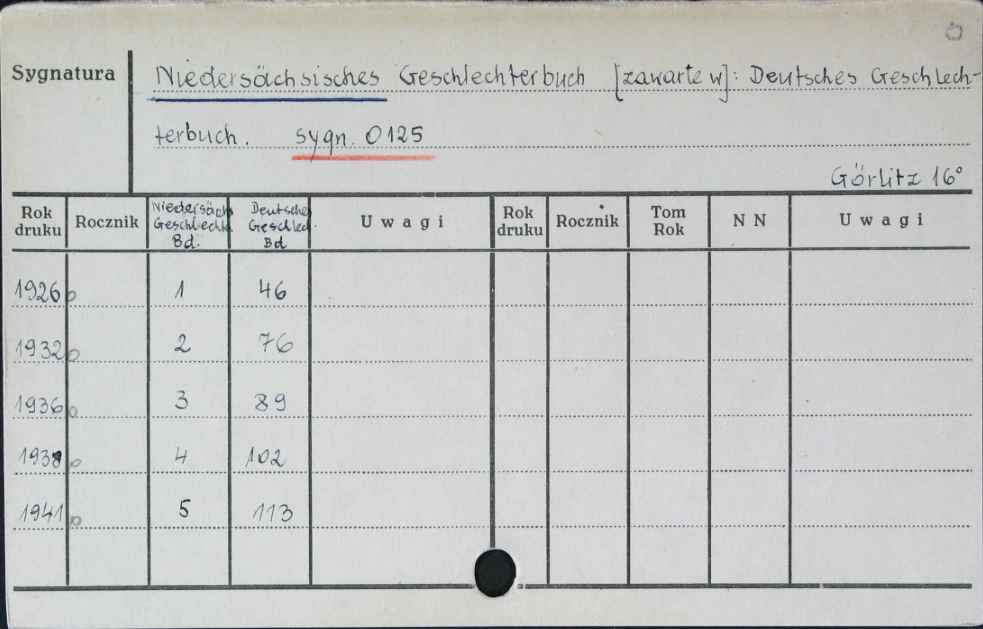 Sygnatura
Niedersächsisches Geschlechterbuch [zawarte w]: Deutsches Geschlech-
terbuch. sygn. 0125
Görlitz 16°
Rok druku Rocznik Niedersäch Geschlecht. Bd. Deutsche Geschlech. Bd Uwagi Rok druku Rocznik Tom Rok NN Uwagi
1926 1 46
1932 2 76
1936 3 89
1938 4 102
1941 5 113